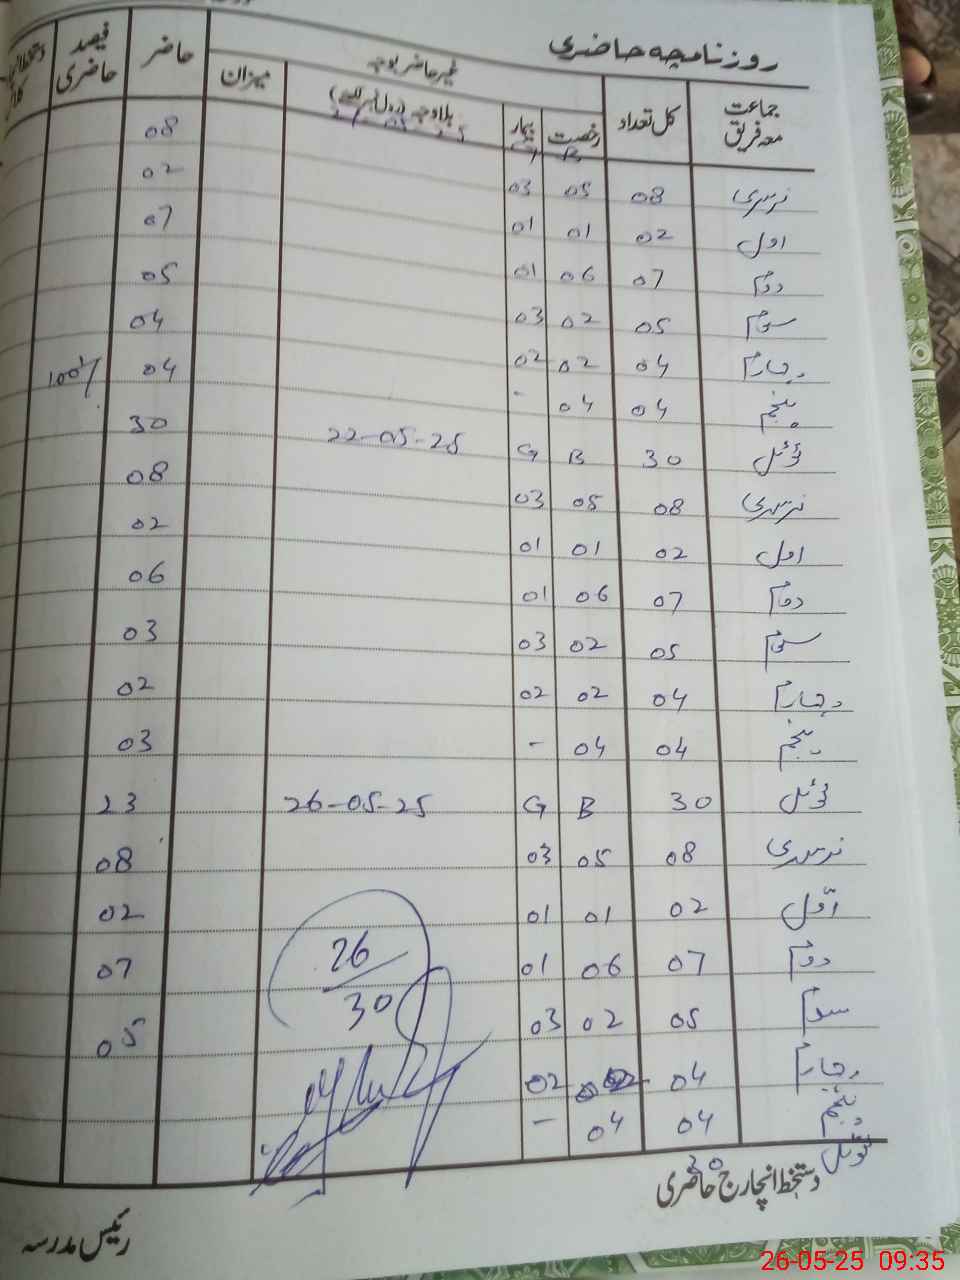 روزنامچہ حاضری
جماعت معہ فریق کل تعداد غیر حاضر بوجہ حاضر فیصد حاضری
رخصت بیمار بلاوجہ (رول نمبر لکھیے) میزان
B G
نرسری 08 05 03 08
اول 02 01 01 02
دوم 07 06 01 07
سوم 05 02 03 05
چہارم 04 02 02 04
پنجم 04 04 - 04 100%
ٹوٹل 30 B G 22-05-25 30
نرسری 08 05 03 08
اول 02 01 01 02
دوم 07 06 01 06
سوم 05 02 03 03
چہارم 04 02 02 02
پنجم 04 04 - 03
ٹوٹل 30 B G 26-05-25 23
نرسری 08 05 03 08
اوّل 02 01 01 02
دوم 07 06 01 07
سوم 05 02 03 05
چہارم 04 02 02
پنجم 04 04 -
ٹوٹل
26
30
دستخط انچارج حاضری
رئیس مدرسہ
26-05-25 09:35